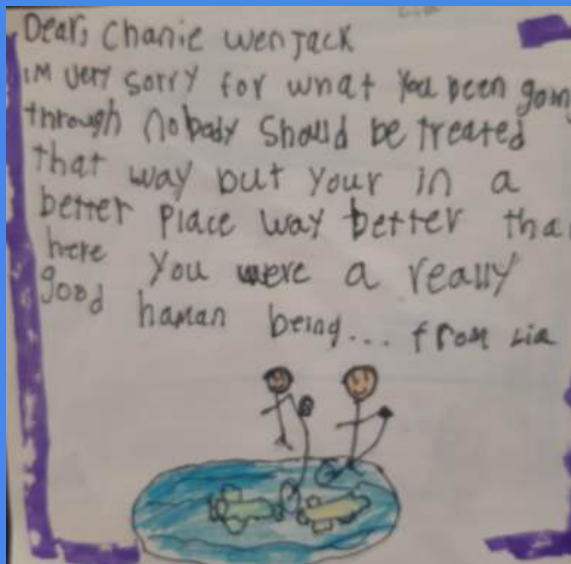 Dear, Chanie Wenjack
im very sorry for what you been going
through nobody should be treated
that way but your in a
better place way better than
here you were a really
good haman being... from Lia